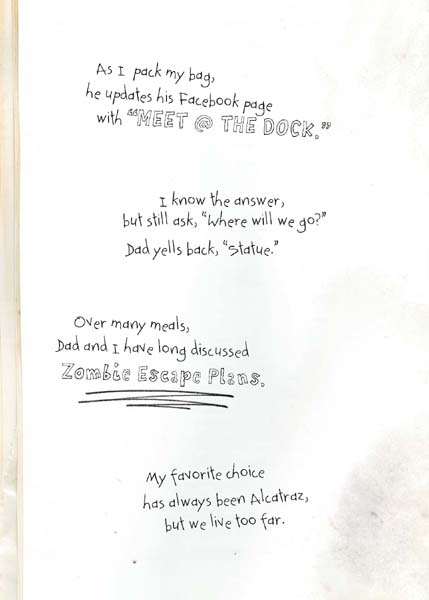 As I pack my bag,
he updates his Facebook page
with "MEET @ THE DOCK."
I know the answer,
but still ask, "Where will we go?"
Dad yells back, "Statue."
Over many meals,
Dad and I have long discussed
Zombie Escape Plans.
My favorite choice
has always been Alcatraz,
but we live too far.